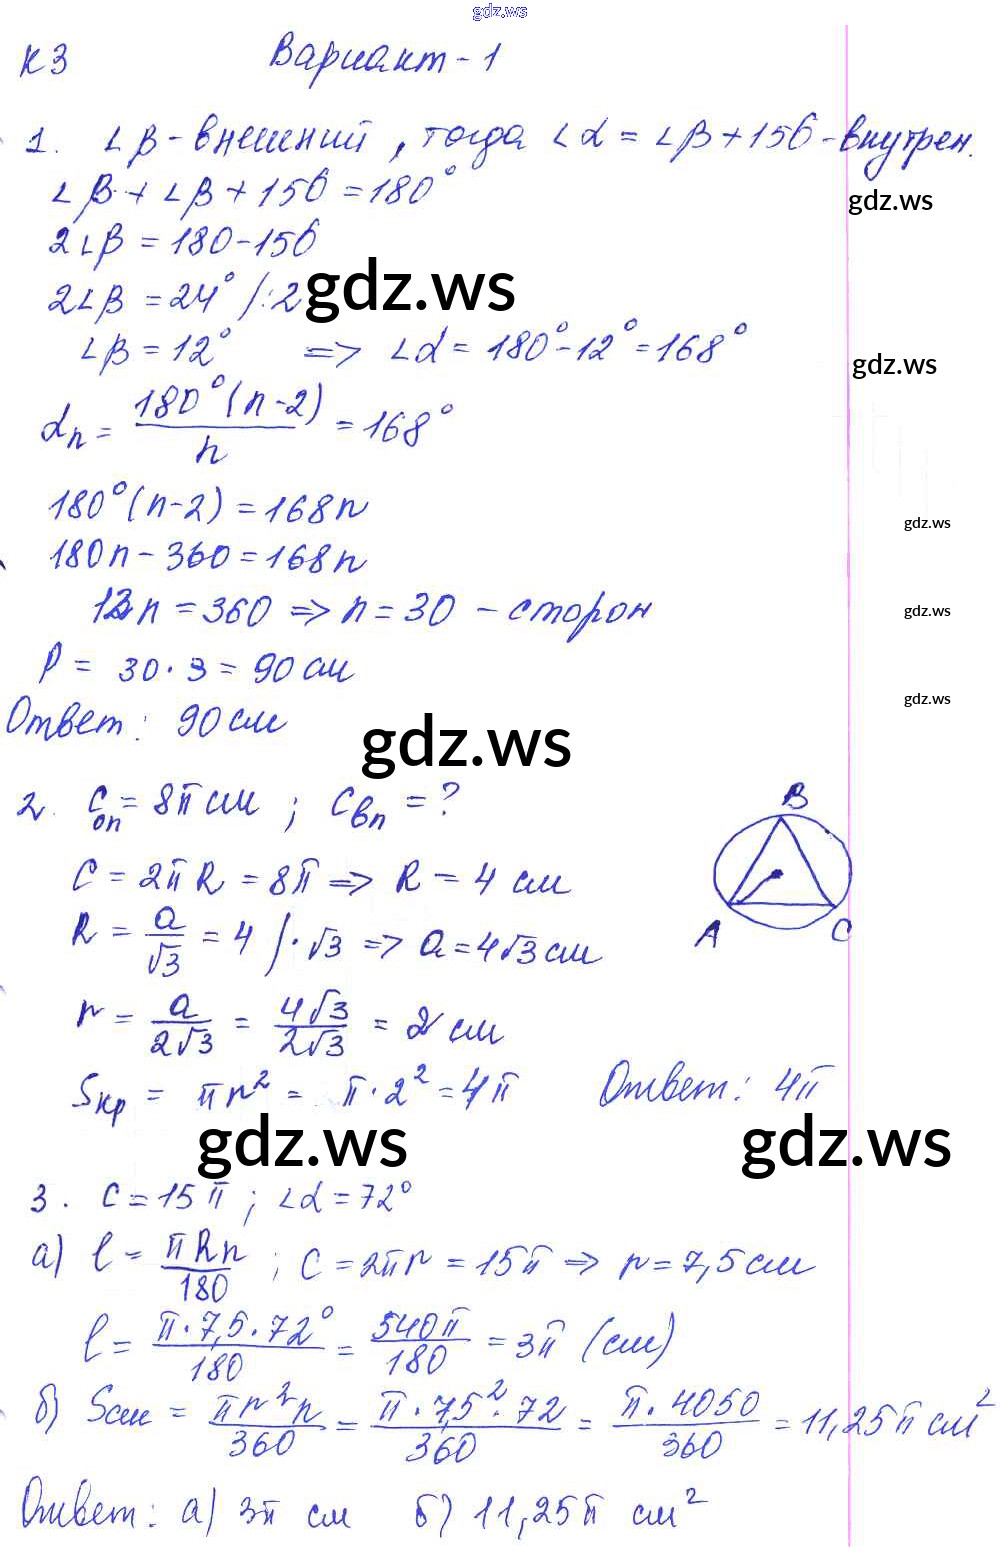 gdz.ws
К3 Вариант-1
1. ∠β-внешний, тогда ∠α = ∠β+156-внутрен.
∠β + ∠β + 156 = 180°
gdz.ws
2∠β = 180-156
2∠β = 24° /:2
gdz.ws
∠β = 12° => ∠α = 180°-12° = 168°
gdz.ws
αn = 180°(n-2)/n = 168°
180°(n-2) = 168n
gdz.ws
180n - 360 = 168n
12n = 360 => n = 30 - сторон
gdz.ws
P = 30·3 = 90 см
gdz.ws
Ответ: 90 см
gdz.ws
2. Cоп = 8π см ; Cвп = ?
B
C = 2πR = 8π => R = 4 см
R = a/√3 = 4 /·√3 => a = 4√3 см
A C
r = a/2√3 = 4√3/2√3 = 2 см
Sкр = πr² = π·2² = 4π Ответ: 4π
gdz.ws gdz.ws
3. C = 15π ; ∠α = 72°
а) l = πRn/180 ; C = 2πr = 15π => r = 7,5 см
l = π·7,5·72°/180 = 540π/180 = 3π (см)
б) Sсм = πr²n/360 = π·7,5²·72/360 = π·4050/360 = 11,25π см²
Ответ: а) 3π см б) 11,25π см²